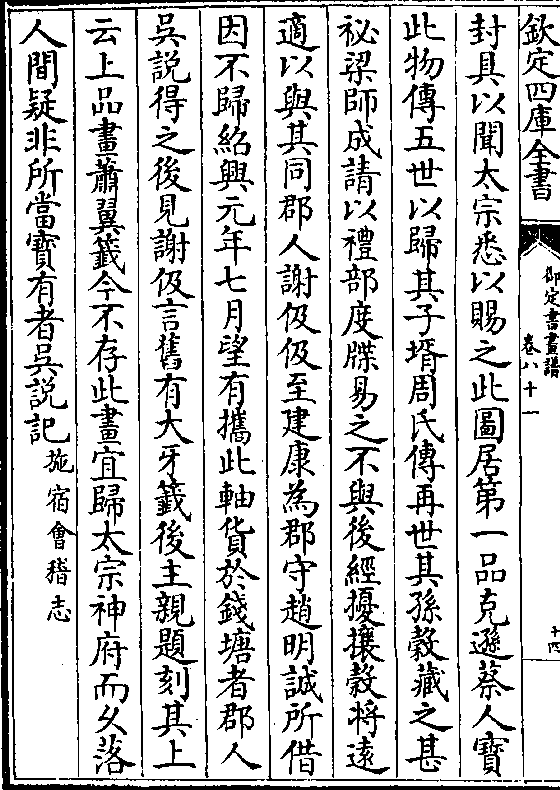 欽定四庫全書
御定書畫譜
卷八十一
十四
封具以聞太宗悉以賜之此圖居第一品克遜蔡人寶
此物傳五世以歸其子壻周氏傳再世其孫穀藏之甚
祕梁師成請以禮部度牒易之不與後經擾攘穀將遠
適以與其同郡人謝伋伋至建康為郡守趙明誠所借
因不歸紹興元年七月望有攜此軸貨於錢塘者郡人
吳説得之後見謝伋言舊有大牙籤後主親題刻其上
云上品畫蕭翼籤今不存此畫宜歸太宗神府而乆落
人間疑非所當寶有者吳説記施宿會稽志